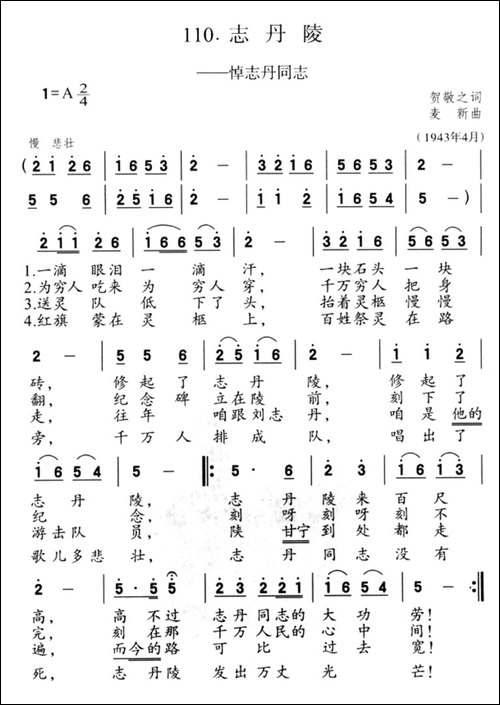 110. 志丹陵
——悼志丹同志
1=A 2/4
贺敬之词
麦新曲
慢 悲壮
(1943年4月)
(2 1 2 6 | 1 6 5 3 | 2 - | 3 2 2 1 | 5 6 5 3 | 5 - |
5 5 6 | 2 5 1 6 | 2 - | 1 1 2 | 1 6 5 4 | 5 - )|
2 1 1 2 6 | 1 6 6 5 3 | 2 - | 3 2 2 1 | 5 6 5 3 |
1.一滴 眼泪一 滴 汗, 一块石头 一块
2.为穷人 吃来为 穷人 穿, 千万穷人 把身
3.送灵 队 低 下了 头, 抬着灵柩 慢慢
4.红旗 蒙在灵 柩 上, 百姓祭灵 在路
2 - | 5 5 6 | 2 5 1 6 | 2 - | 1 1 2 |
砖, 修起了 志丹 陵, 修起了
翻, 纪念碑 立在陵 前, 刻下了
走, 往年 咱跟刘志 丹, 咱是他的
旁, 千万人 排成 队, 唱出了
1 6 5 4 | 5 - :5 · 6 | 2 3 | 1 6 1 3 |
志丹 陵, 志 丹 陵来 百尺
纪 念, 刻 呀 刻呀 刻不
游击队 员, 陕 甘宁到处 都走
歌儿多悲 壮, 志 丹 同志 没有
2 - | 5 · 5 5 | 3 2 2 1 | 1 6 5 4 | 5 - :
高, 高 不过 志丹同志的 大功 劳!
完, 刻 在那 千万人民的 心中 间!
遍, 而今的路 可比 过去 宽!
死, 志丹陵 发出万丈 光 芒!